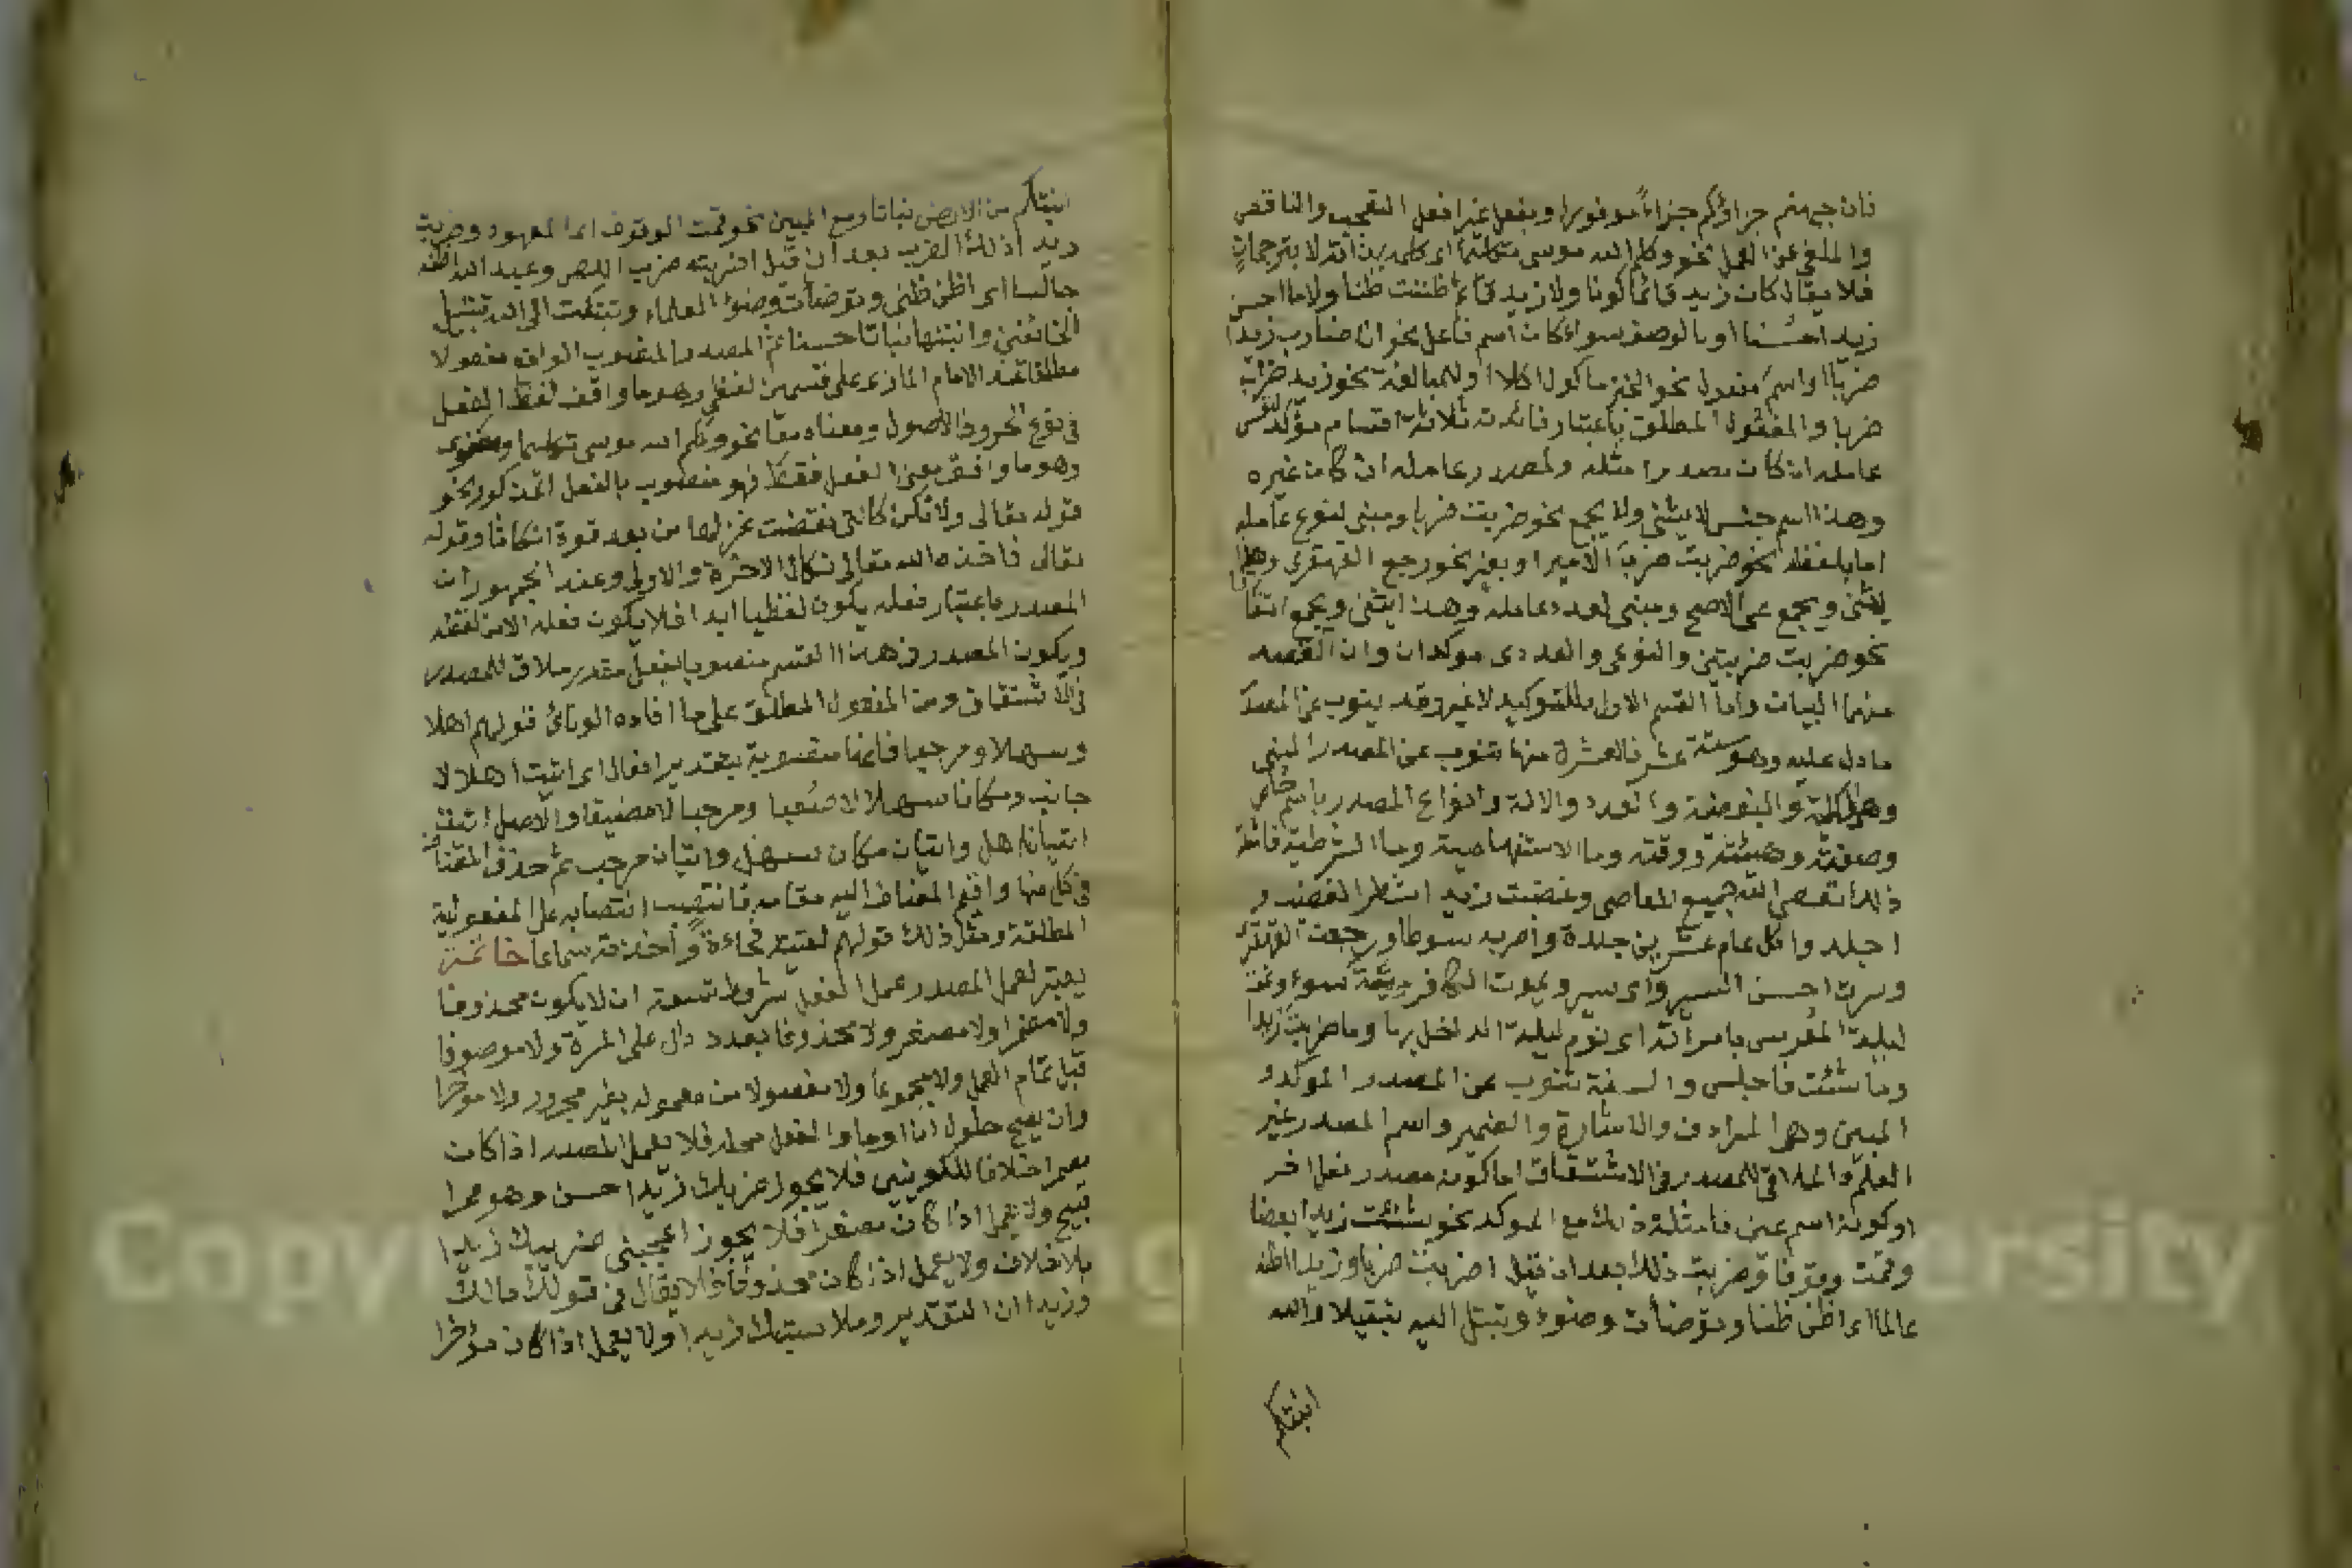 فان جهنم جزاؤكم جزاء موفورا وبفعل غير افعل التعجب والناقص
والملغي عن العمل نحو وكلم الله موسى تكليما اى كلمه بذاته لا بترجمان
فلا يقال كان زيد قائما كونا ولا زيد قائم ظننت ظنا ولا ما احسن
زيدا حسنا او بالوصف سواء كان اسم فاعل نحو انا ضارب زيدا
ضربا او اسم مفعول نحو الخبز ماكول اكلا او للمبالغة نحو زيد ضراب
ضربا والمفعول المطلق باعتبار فائدته ثلاثة اقسام مؤكد لنفس
عامله ان كان مصدرا مثله ولمصدر عامله ان كان غيره
وهذا اسم جنس لا يثنى ولا يجمع نحو ضربت ضربا ومبنى لنوع عامله
اما بلفظه نحو ضربت ضرب الامير او بغيره نحو رجع القهقرى وهذا
يثنى ويجمع على الاصح ومبنى لعدد عامله وهذا يثنى ويجمع اتفاقا
نحو ضربت ضربتين والنوعى والعددى موكدان وان القصد
منهما البيان واما القسم الاول فللتوكيد لا غير وقد ينوب عن المصدر
ما دل عليه وهو ستة عشر فالعشرة منها تنوب عن المصدر المبنى
وهى الكلية والبعضية والعدد والالة وانواع المصدر باسم خاص
وصفته وهيئته ووقته وما الاستفهامية وما الشرطية فامثلة
ذلك اتعصى الله جميع المعاصى وغضبت زيد اشطر الغضب و
اجلد واكل عام عشرين جلدة واضربه سوطا ورجعت القهقرى
وسرت احسن السير واى سير ويموت الكافر ميتة سوء ونمت
ليلة العرس بامراته اى نوم ليلة الداخل بها وما ضربت زيدا
وما شئت فاجلس والستة تنوب عن المصدر الموكد و
المبين وهى المرادف والاشارة والضمير واسم المصدر غير
العلم والملاقى للمصدر فى الاشتقاق اما كونه مصدر فعل اخر
او كونه اسم عين فامثلة ذلك مع الموكد نحو شنئت زيدا بغضا
وقمت وقوفا وضربت ذلك بعد ان قيل اضربت ضربا وزيدا اظنه
عالما اى اظن ظنا وتوضأت وضوء وتبتل اليه تبتيلا والله
انبتكم
انبتكم من الارض نباتا ومع المبين نحو قمت الوقوف اى المعهود وضربت
زيدا ذلك الضرب بعد ان قيل اضربته ضرب اللص وعبد الله اظنه
جالسا اى اظن ظنى وتوضأت وضوء العلماء وتبتلت الى الله تبتيل
الخائفين وانبتها نباتا حسنا ثم المصدر المنصوب الواقع مفعولا
مطلقا عند الامام المازنى على قسمين لفظى وهو ما وافق لفظ الفعل
فى نوع الحروف الاصول ومعناه معا نحو وكلم الله موسى تكليما ومعنوى
وهو ما وافق معنى الفعل فقط فهو منصوب بالفعل المذكور نحو
قوله تعالى ولا تكونوا كالتى نقضت غزلها من بعد قوة انكاثا وقوله
تعالى فاخذه الله نكال الاخرة والاولى وعند الجمهور ان
المصدر باعتبار فعله يكون لفظيا ابدا فلا يكون فعله الا من لفظه
ويكون المصدر فى هذا القسم منصوبا بفعل مقدر ملاق للمصدر
فى الاشتقاق ومن المفعول المطلق على ما افاده الونائى قولهم اهلا
وسهلا ومرحبا فانها منصوبة بتقدير افعال اى اتيت اهلا لا
جانب ومكانا سهلا لا صعبا ومرحبا لا مضيقا والاصل اتيت
اتيان اهل واتيان مكان سهل واتيان مرحب ثم حذف المضاف
فى كل منها واقيم المضاف اليه مقامه فانتصب انتصابه على المفعولية
المطلقة ومثل ذلك قولهم لقيته فجاءة واخذته سماعا خاتمة
يعتبر لعمل المصدر عمل الفعل شروط تسعة ان لا يكون محذوفا
ولا مضمرا ولا مصغرا ولا محدودا بعدد دال على المرة ولا موصوفا
قبل تمام العمل ولا مجموعا ولا مفصولا من معموله بغير مجرور ولا موخرا
وان يصح حلول ان او ما والفعل محله فلا يعمل المصدر اذا كان
مضمرا خلافا للكوفيين فلا يجوز ضربك زيدا حسن وهو عمرا
قبيح ولا يعمل اذا كان مصغرا فلا يجوز اعجبنى ضريبك زيدا
بلا خلاف ولا يعمل اذا كان محذوفا فلا يقال فى قولك مالك
وزيدا ان التقدير وملابستك زيدا ولا يعمل اذا كان مؤخرا